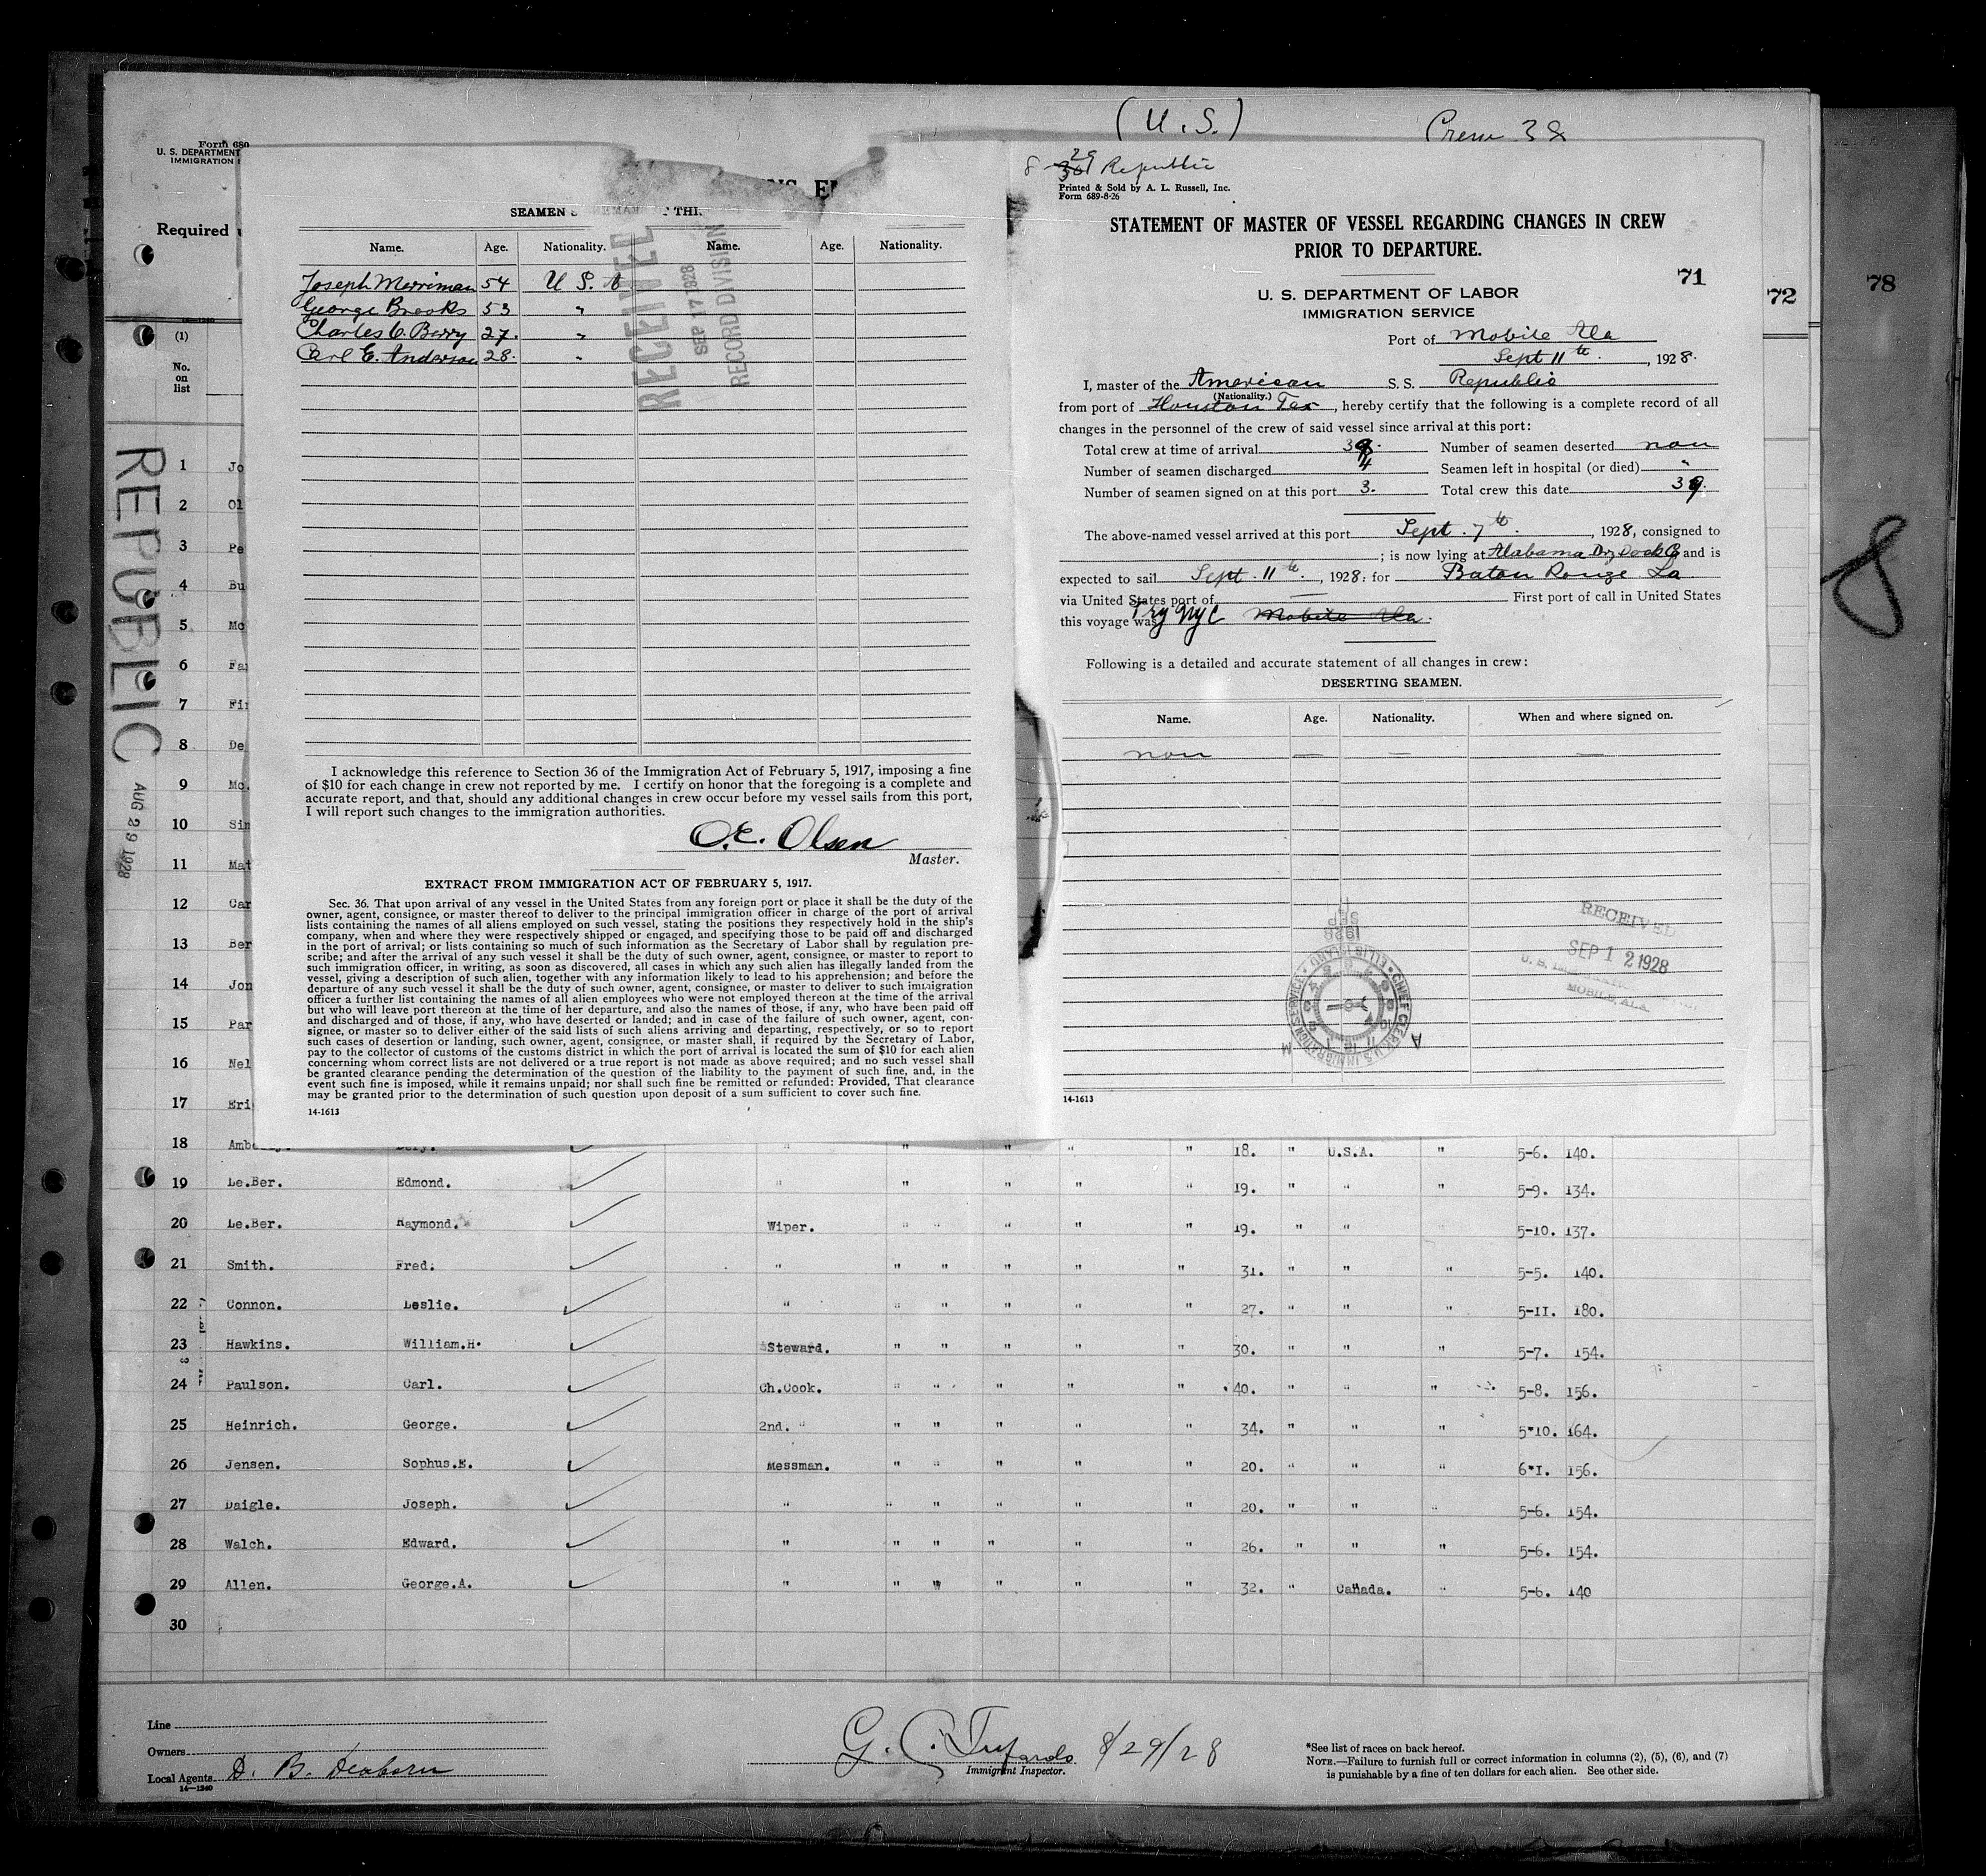 (U.S.)
Crew 38
Form 680
U. S. DEPARTMENT
IMMIGRATION
Required
(1)
No.
on
list
REPUBLIC
AUG 29 1928
SEAMEN
THI
Name. Age. Nationality. Name. Age. Nationality.
Joseph Merriman 54 U S. A
George Brooks 53 "
Charles C. Berry 27. "
Carl E. Anderson 28. "
RECEIVED
SEP 17 1928
RECORD DIVISION
I acknowledge this reference to Section 36 of the Immigration Act of February 5, 1917, imposing a fine
of $10 for each change in crew not reported by me. I certify on honor that the foregoing is a complete and
accurate report, and that, should any additional changes in crew occur before my vessel sails from this port,
I will report such changes to the immigration authorities.
O.E. Olsen
Master.
EXTRACT FROM IMMIGRATION ACT OF FEBRUARY 5, 1917.
Sec. 36. That upon arrival of any vessel in the United States from any foreign port or place it shall be the duty of the
owner, agent, consignee, or master thereof to deliver to the principal immigration officer in charge of the port of arrival
lists containing the names of all aliens employed on such vessel, stating the positions they respectively hold in the ship's
company, when and where they were respectively shipped or engaged, and specifying those to be paid off and discharged
in the port of arrival; or lists containing so much of such information as the Secretary of Labor shall by regulation pre-
scribe; and after the arrival of any such vessel it shall be the duty of such owner, agent, consignee, or master to report to
such immigration officer, in writing, as soon as discovered, all cases in which any such alien has illegally landed from the
vessel, giving a description of such alien, together with any information likely to lead to his apprehension; and before the
departure of any such vessel it shall be the duty of such owner, agent, consignee, or master to deliver to such immigration
officer a further list containing the names of all alien employees who were not employed thereon at the time of the arrival
but who will leave port thereon at the time of her departure, and also the names of those, if any, who have been paid off
and discharged and of those, if any, who have deserted or landed; and in case of the failure of such owner, agent, con-
signee, or master so to deliver either of the said lists of such aliens arriving and departing, respectively, or so to report
such cases of desertion or landing, such owner, agent, consignee, or master shall, if required by the Secretary of Labor,
pay to the collector of customs of the customs district in which the port of arrival is located the sum of $10 for each alien
concerning whom correct lists are not delivered or a true report is not made as above required; and no such vessel shall
be granted clearance pending the determination of the question of the liability to the payment of such fine, and, in the
event such fine is imposed, while it remains unpaid; nor shall such fine be remitted or refunded: Provided, That clearance
may be granted prior to the determination of such question upon deposit of a sum sufficient to cover such fine.
14-1613
8 29 Republic
Printed & Sold by A. L. Russell, Inc.
Form 689-8-26
STATEMENT OF MASTER OF VESSEL REGARDING CHANGES IN CREW
PRIOR TO DEPARTURE.
71
72
78
8
U. S. DEPARTMENT OF LABOR
IMMIGRATION SERVICE
Port of Mobile Ala
Sept 11th., 1928.
I, master of the American S. S. Republic
(Nationality.)
from port of Houston Tex, hereby certify that the following is a complete record of all
changes in the personnel of the crew of said vessel since arrival at this port:
Total crew at time of arrival 39. Number of seamen deserted non
Number of seamen discharged 4 Seamen left in hospital (or died) "
Number of seamen signed on at this port 3. Total crew this date 39.
The above-named vessel arrived at this port Sept. 7th., 1928, consigned to
; is now lying at Alabama Dry Dock Co and is
expected to sail Sept. 11th., 1928: for Baton Rouge La
via United States port of — First port of call in United States
this voyage was Try NYC Mobile Ala.
Following is a detailed and accurate statement of all changes in crew:
DESERTING SEAMEN.
Name. Age. Nationality. When and where signed on.
non — — —
RECEIVED
SEP 12 1928
MOBILE, ALA.
SEP
1928
CHIEF CLERK U.S. IMMIGRATION SERVICE ELLIS ISLAND
A M
14-1613
1 Jo
2 Ol
3 Pe
4 Bu
5 Mc
6 Fa
7 Fi
8 De
9 Mc.
10 Sin
11 Mat
12 Car
13 Ber
14 Jon
15 Par
16 Nel
17 Eri
18 Amb " " " " " 18. " U.S.A. " 5-6. 140.
19 Le.Ber. Edmond. " " " " " 19. " " " 5-9. 134.
20 Le.Ber. Raymond. Wiper. " " " " " 19. " " " 5-10. 137.
21 Smith. Fred. " " " " " " 31. " " " 5-5. 140.
22 Connon. Leslie. " " " " " " 27. " " " 5-11. 180.
23 Hawkins. William.H. Steward. " " " " " 30. " " " 5-7. 154.
24 Paulson. Carl. Ch.Cook. " " " " " 40. " " " 5-8. 156.
25 Heinrich. George. 2nd. " " " " " " 34. " " " 5"10. 164.
26 Jensen. Sophus.E. Messman. " " " " " 20. " " " 6"1. 156.
27 Daigle. Joseph. " " " " " " 20. " " " 5-6. 154.
28 Walch. Edward. " " " " " " 26. " " " 5-6. 154.
29 Allen. George.A. " " " " " " 32. " Canada. " 5-6. 140
30
Line
Owners
Local Agents D. B. Dearborn
14—1240
G. C. 8/29/28
Immigrant Inspector.
*See list of races on back hereof.
NOTE.—Failure to furnish full or correct information in columns (2), (5), (6), and (7)
is punishable by a fine of ten dollars for each alien. See other side.